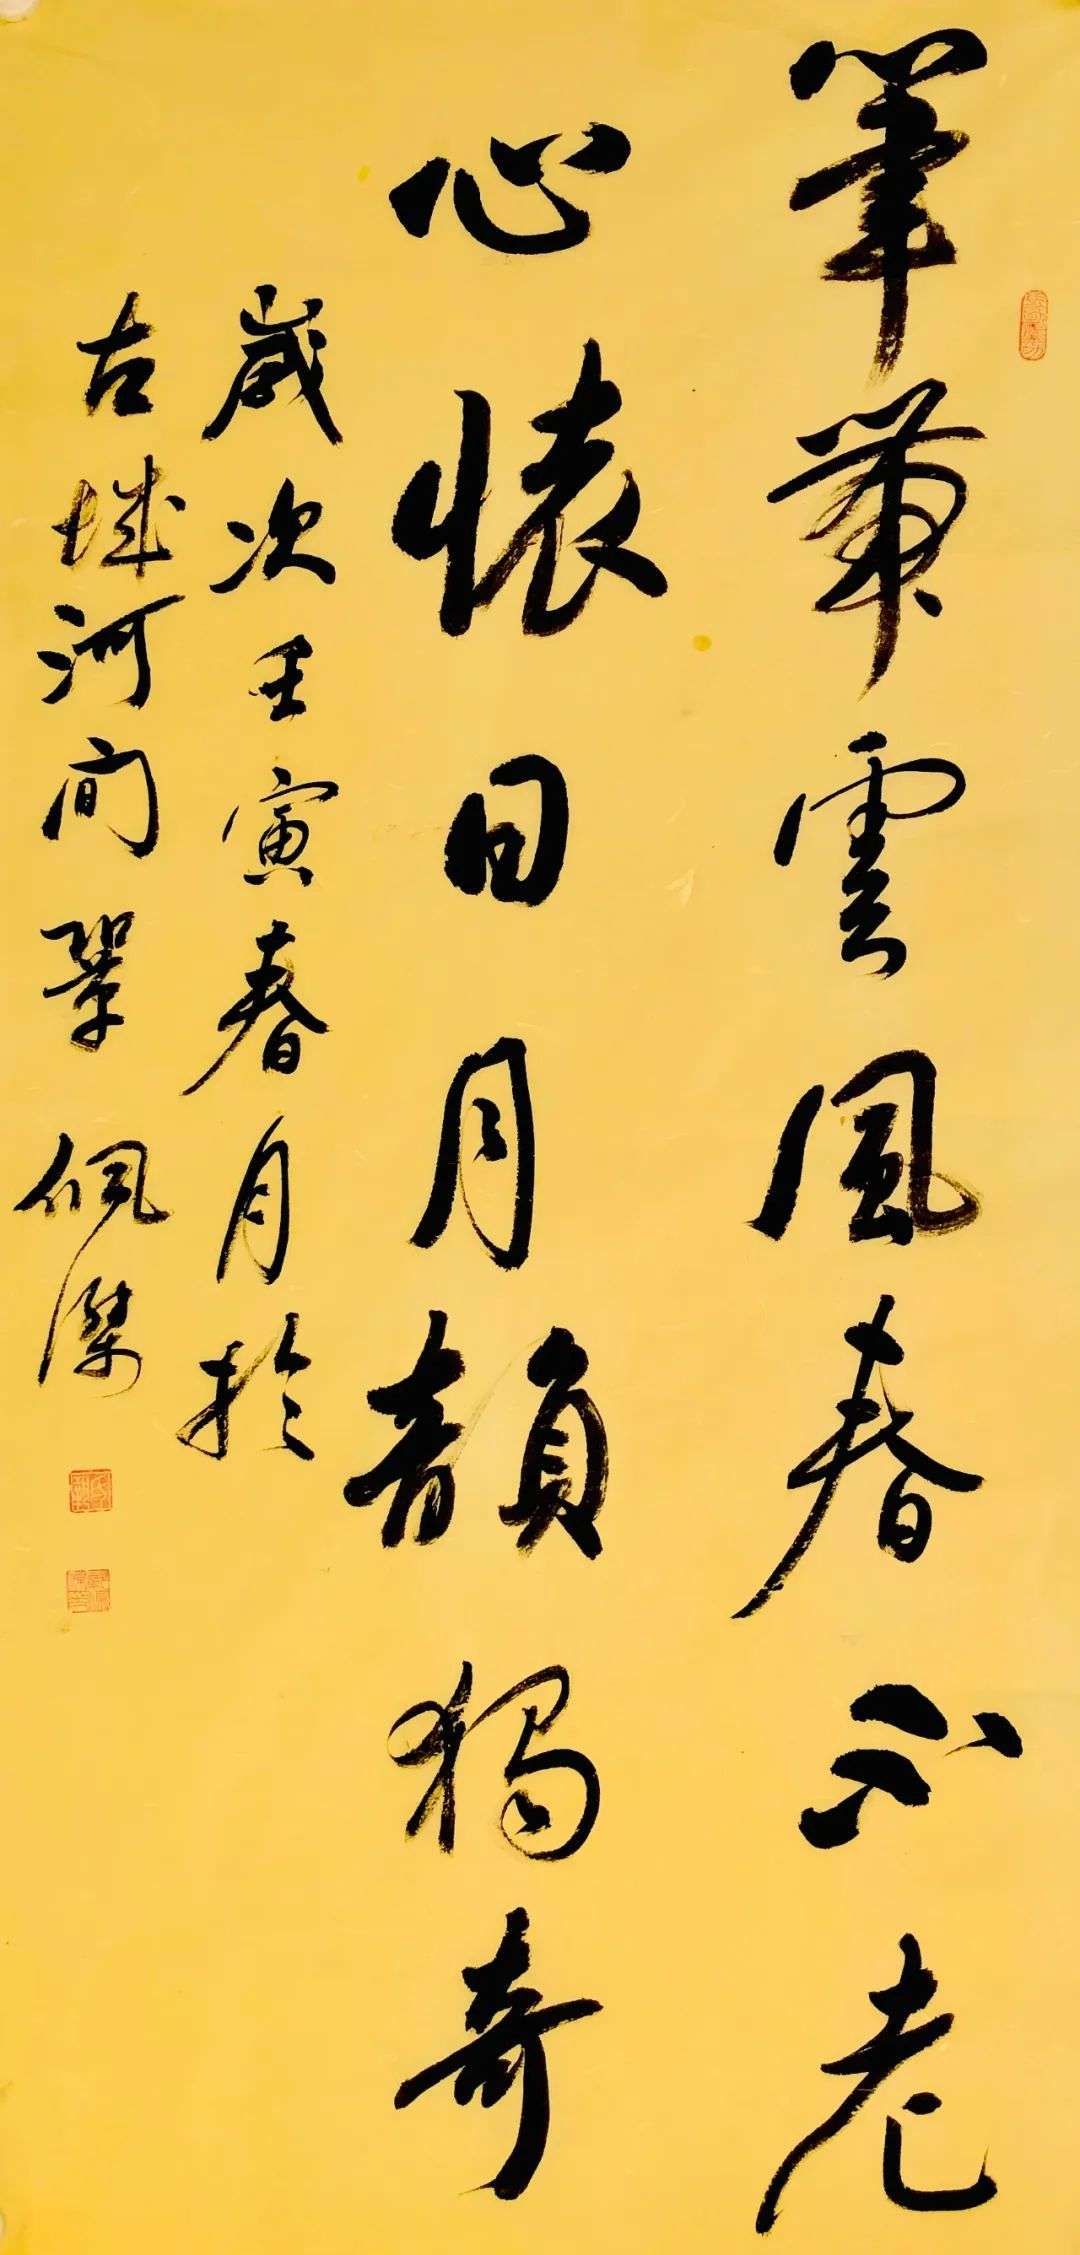 筆帶雲風春不老
心懷日月韻獨奇
歲次壬寅春月於
古城河間 佩傑